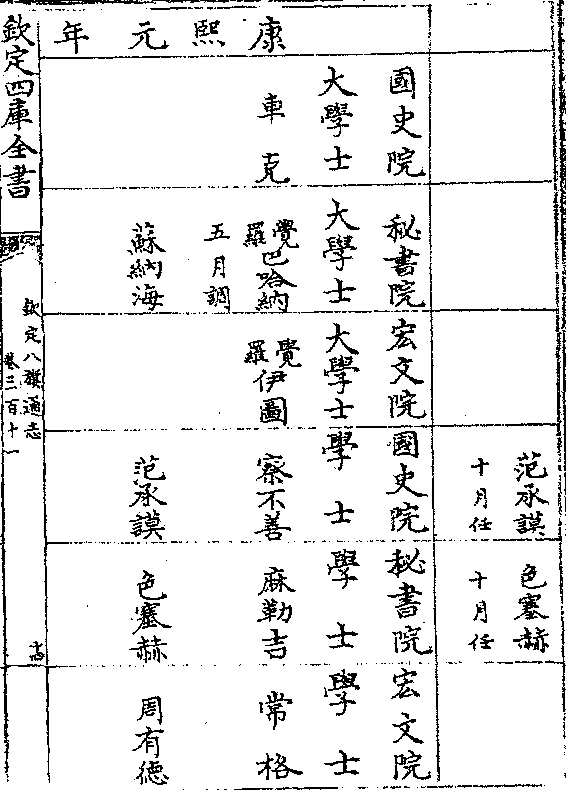 范承謨
十月任
色塞赫
十月任
康熙元年
國史院
大學士
車克
秘書院
大學士
覺羅巴哈納
五月調
蘇納海
宏文院
大學士
覺羅伊圖
國史院
學士
察不善
范承謨
秘書院
學士
麻勒吉
色塞赫
宏文院
學士
常格
周有德
欽定四庫全書
欽定八旗通志
卷三百十一